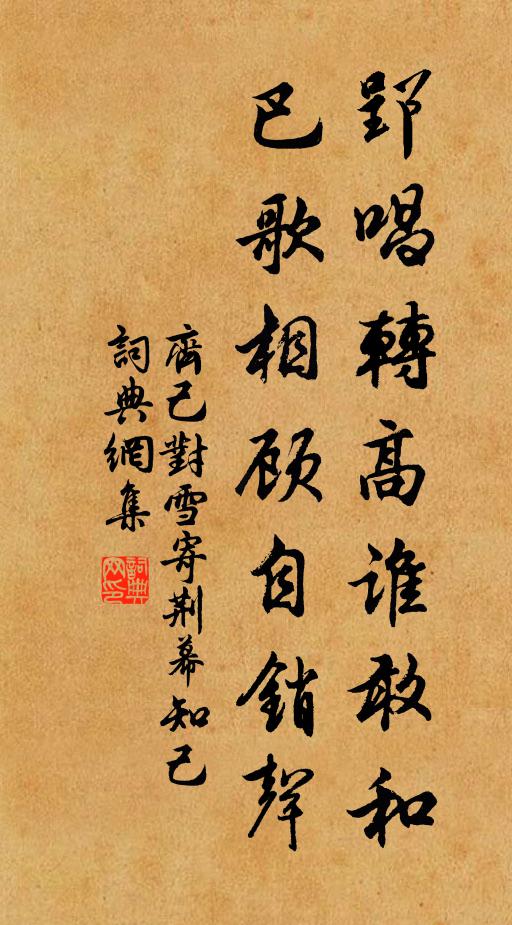 郢唱轉高誰敢和
巴歌相顾自銷聲
齊己對雪寄荆幕知己
詞典網集
詞典网印